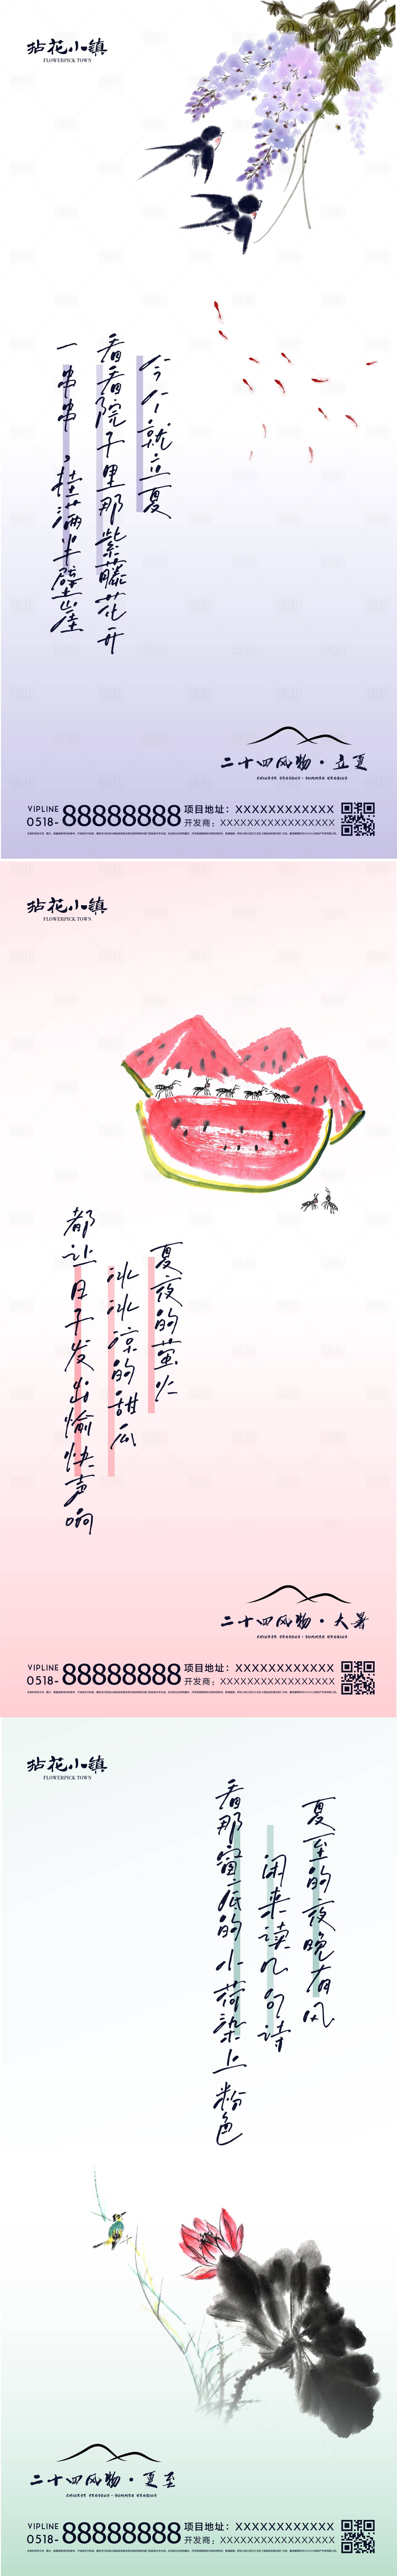 拈花小镇
FLOWERPICK TOWN
今个就立夏
看看院子里那紫藤花开
一串串，挂满半壁岩崖
二十四风物·立夏
CHINESE SEASONS·SUMMER HERDING
VIPLINE
0518-88888888
项目地址：XXXXXXXXXXXX
开发商：XXXXXXXXXXXXXX
拈花小镇
FLOWERPICK TOWN
夏夜的萤火
冰冰凉的甜瓜
都让日子发出愉快声响
二十四风物·大暑
CHINESE SEASONS·SUMMER HERDING
VIPLINE
0518-88888888
项目地址：XXXXXXXXXXXX
开发商：XXXXXXXXXXXXXX
拈花小镇
FLOWERPICK TOWN
夏至的夜晚有风
闲来读几句诗
看那窗底的小荷染上粉色
二十四风物·夏至
CHINESE SEASONS·SUMMER HERDING
VIPLINE
0518-88888888
项目地址：XXXXXXXXXXXX
开发商：XXXXXXXXXXXXXX